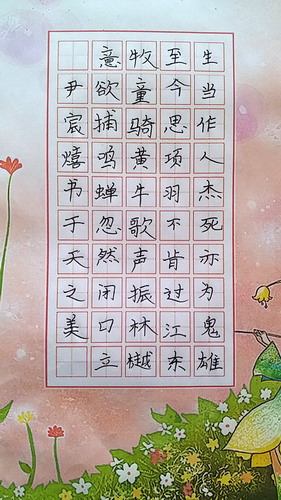 生当作人杰死亦为鬼雄
至今思项羽不肯过江东
牧童骑黄牛歌声振林樾
意欲捕鸣蝉忽然闭口立
尹宸熺书于天之美